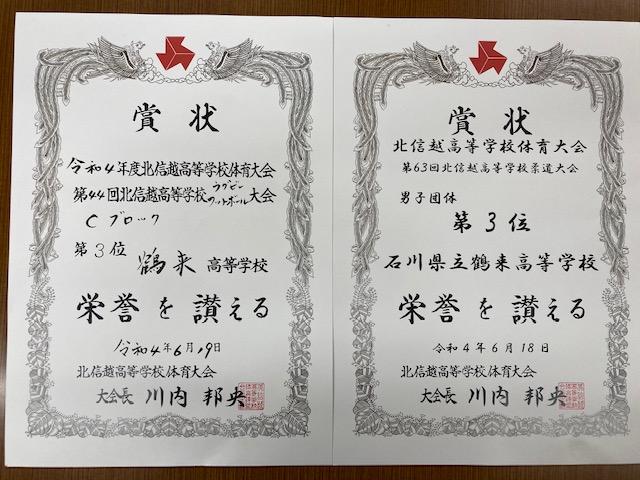 賞状
令和4年度北信越高等学校体育大会
第44回北信越高等学校ラグビーフットボール大会
Cブロック
第3位
鶴来高等学校
栄誉を讃える
令和4年6月19日
北信越高等学校体育大会
大会長 川内 邦央
賞状
北信越高等学校体育大会
第63回北信越高等学校柔道大会
男子団体
第3位
石川県立鶴来高等学校
栄誉を讃える
令和4年6月18日
北信越高等学校体育大会
大会長 川内 邦央